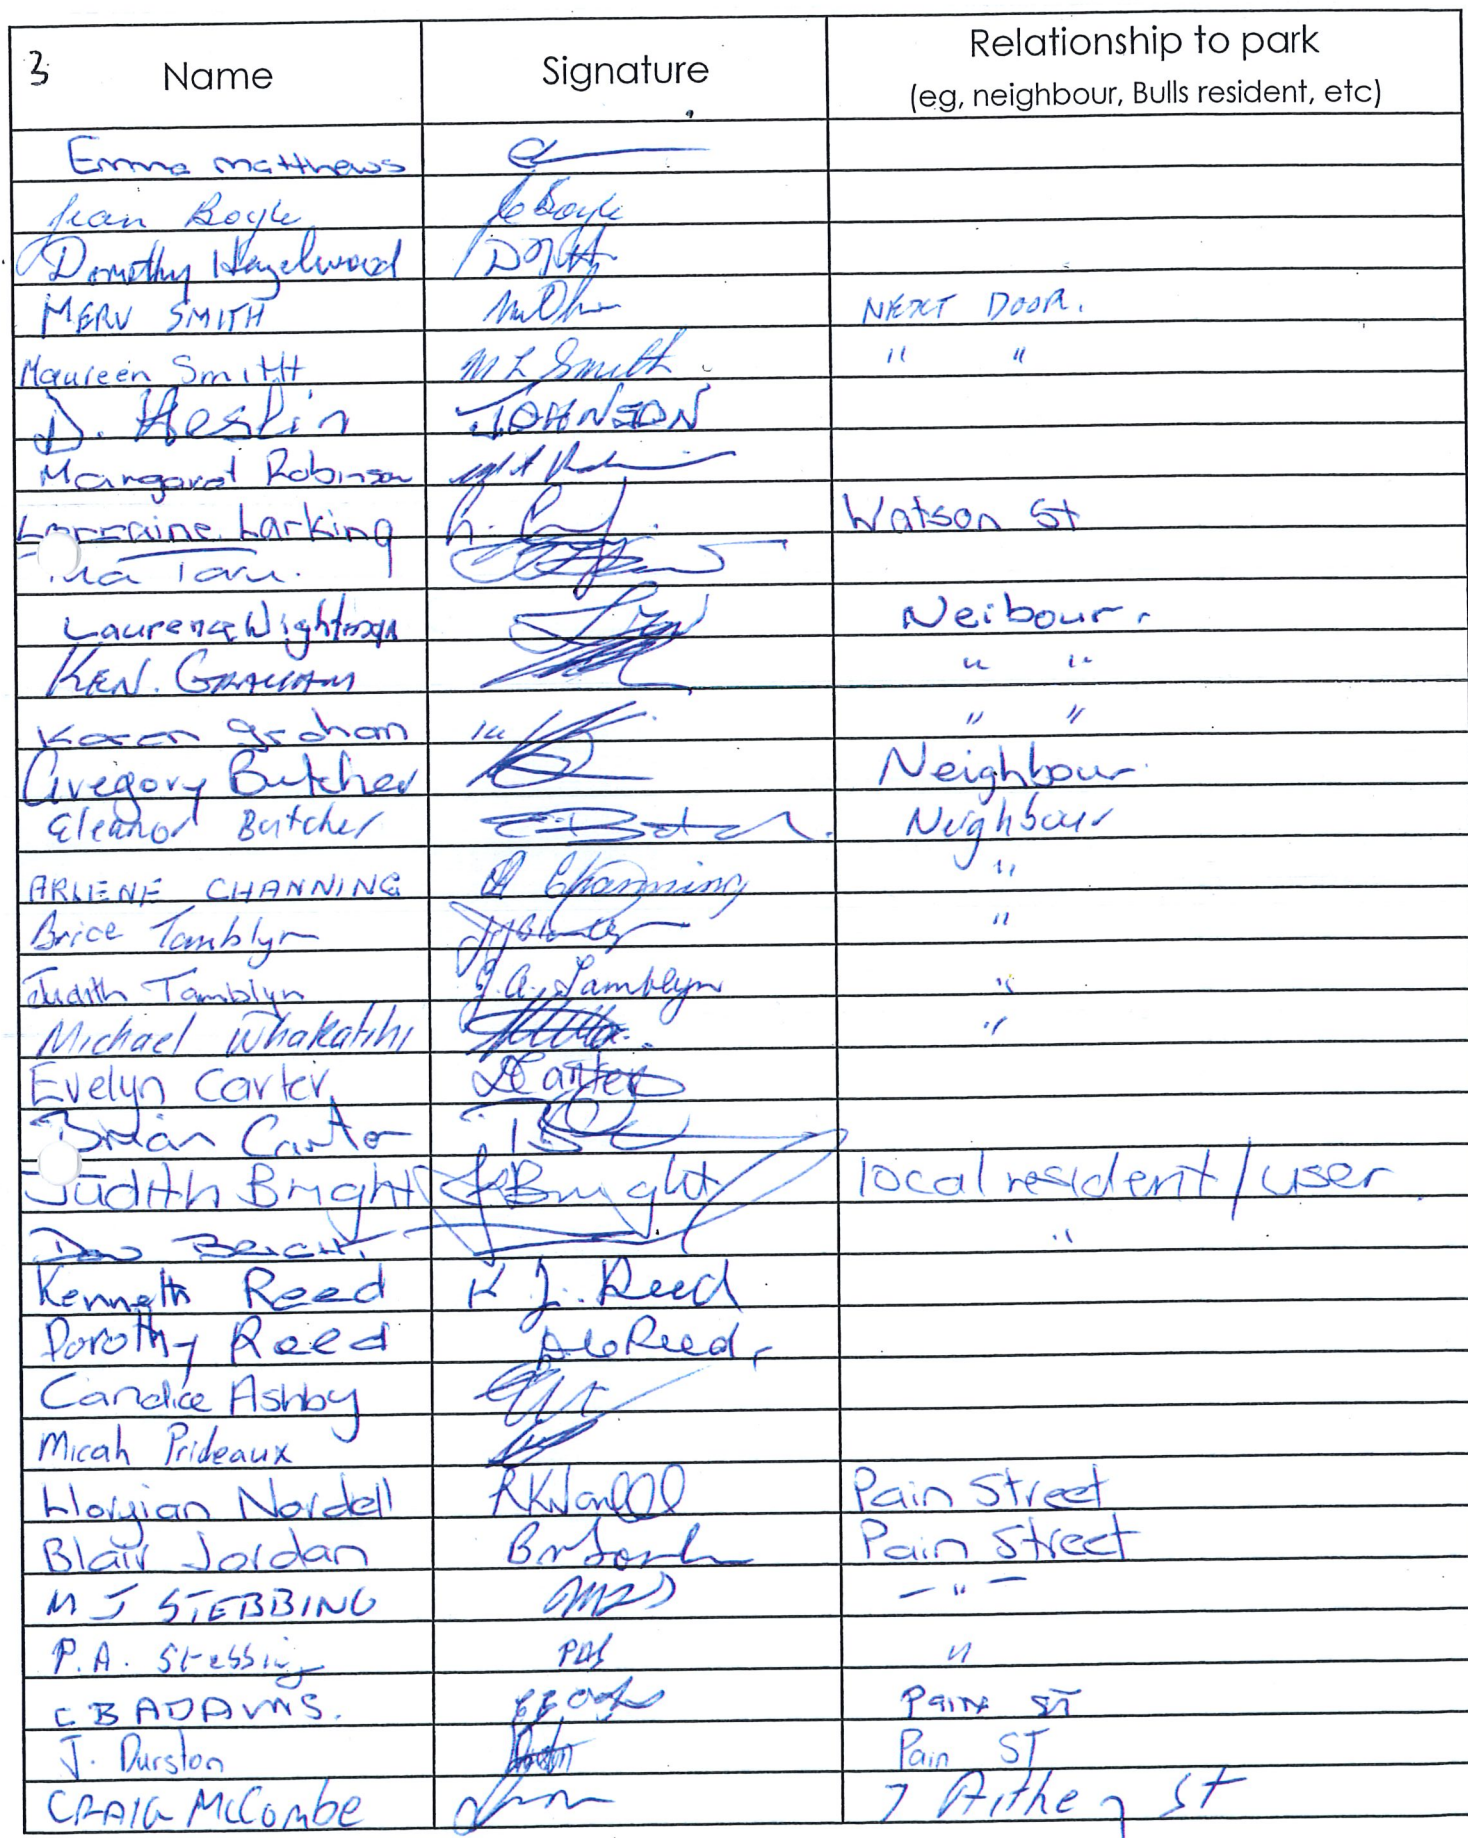 3 Name Signature Relationship to park
(eg, neighbour, Bulls resident, etc)
Emma matthews
Jean Boyle Boyle
Dorothy Hazelwood
MERV SMITH NEXT DOOR.
Maureen SmitH M L Smith " "
D. Heslin JOHNSON
Margaret Robinson
Lorraine Larking Watson St
Laurence Wightman Neibour.
KEN. GRAHAM " "
Karen graham " "
Gregory Butcher Neighbour
Eleanor Butcher Neighbour
ARLENE CHANNING A Channing "
Brice Tamblyn "
Judith Tamblyn J.A. Tamblyn "
Michael Whakatihi "
Evelyn Carter Carter
Brian Carter
Judith Bright J Bright local resident/user
"
Kenneth Reed K J. Reed
Dorothy Reed Reed
Candice Ashby
Micah Prideaux
Nordell Pain Street
Blair Jordan Pain Street
M J STEBBING MJS - " -
P.A. Stebbing PAS "
C B ADAMS. Pain ST
J. Durston Pain ST
CRAIG McCombe 7 St